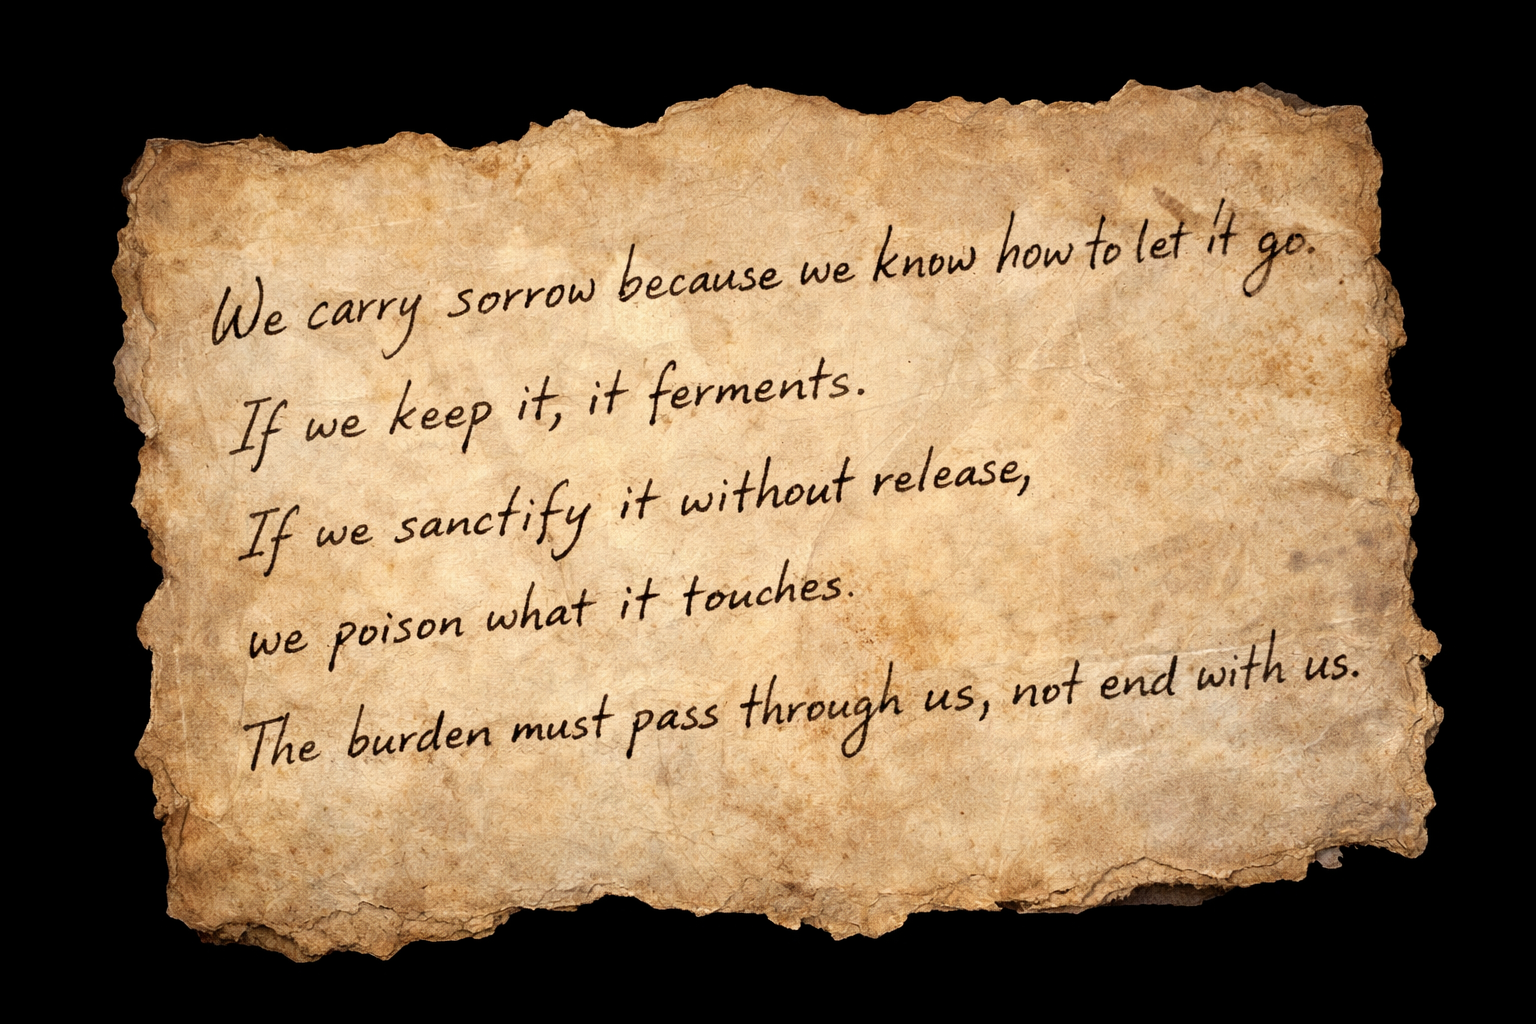 We carry sorrow because we know how to let it go.
If we keep it, it ferments.
If we sanctify it without release,
we poison what it touches.
The burden must pass through us, not end with us.